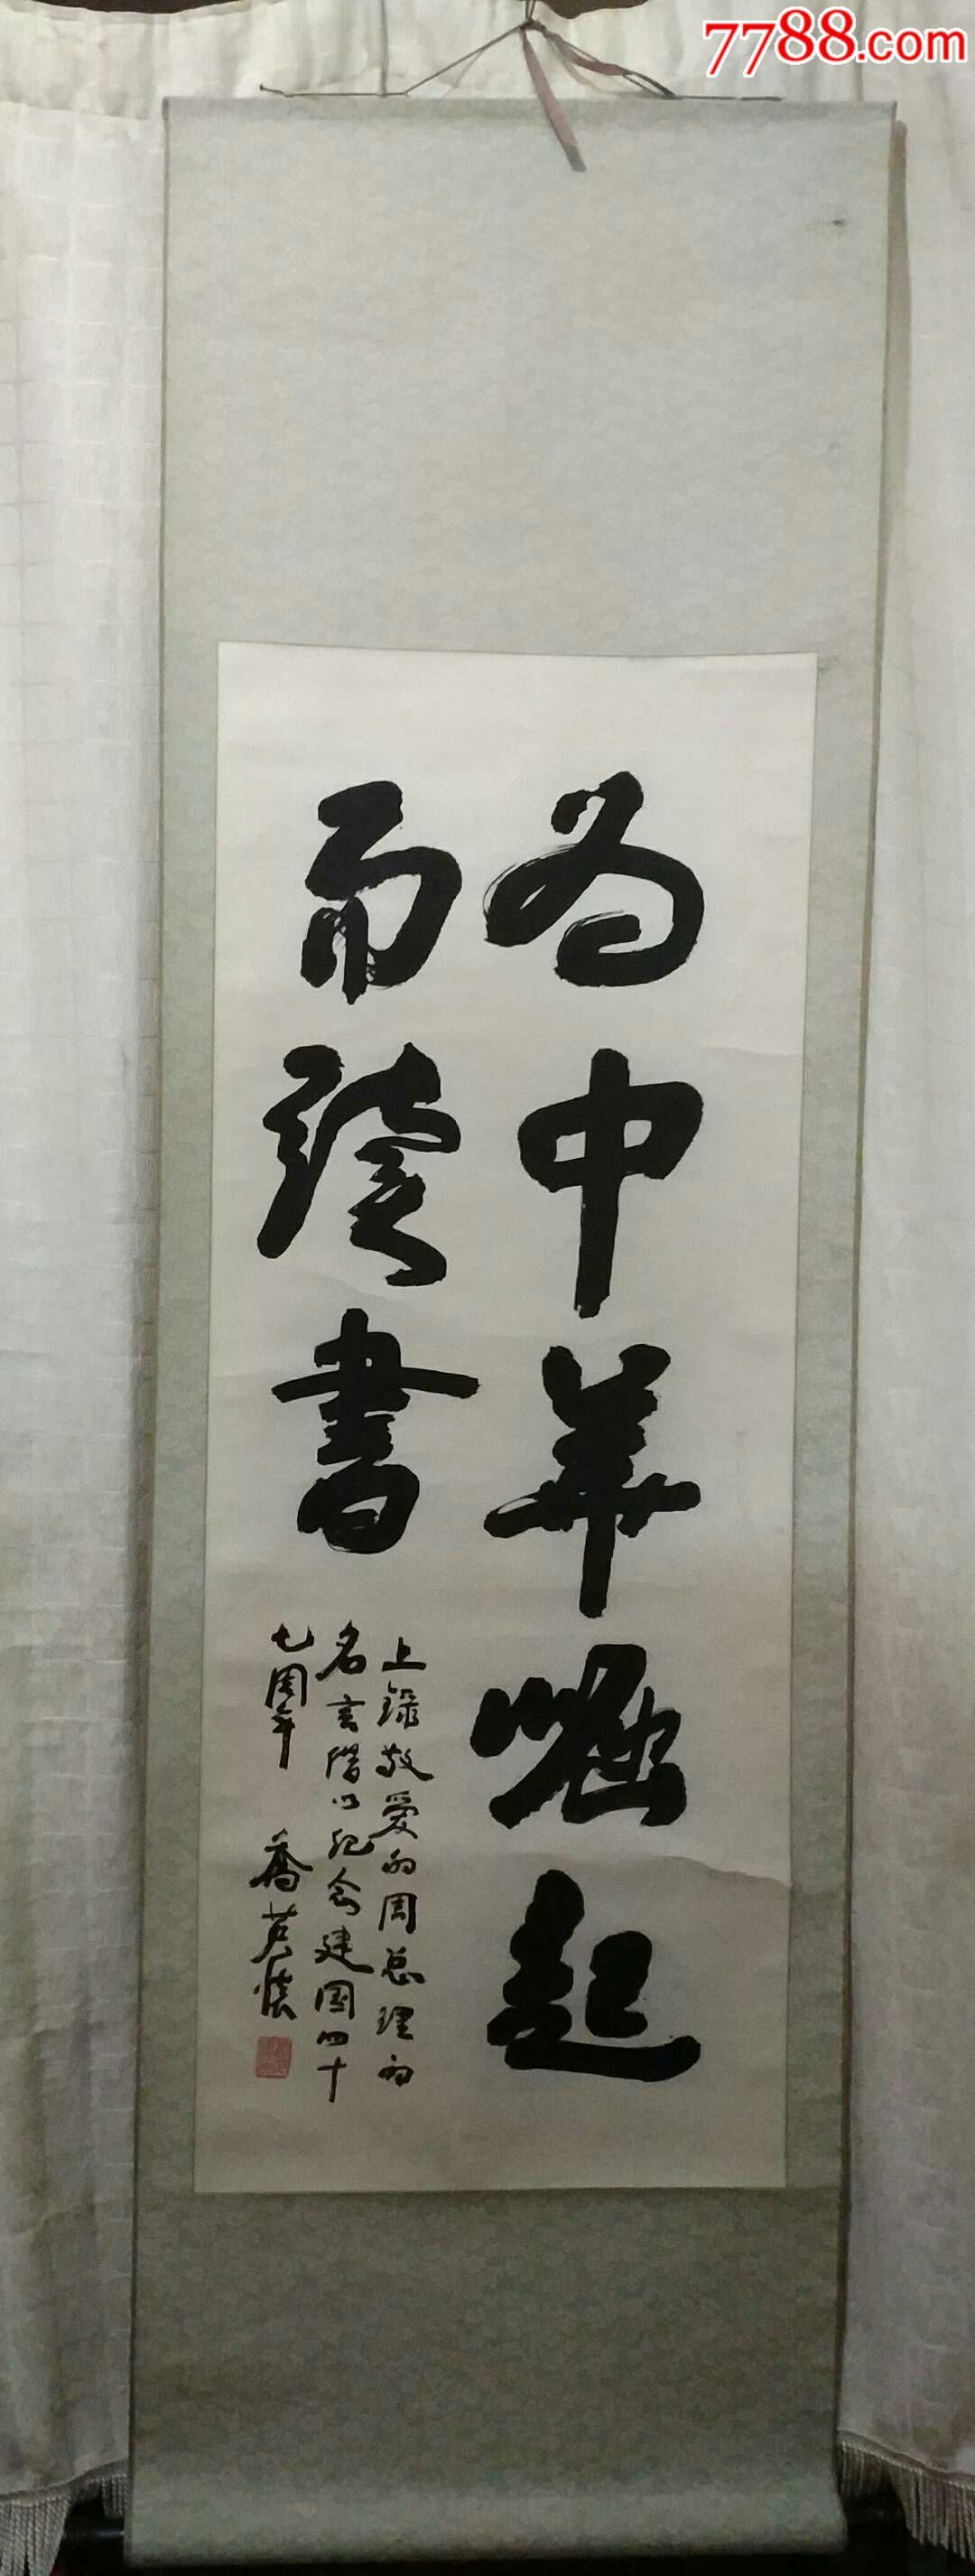 7788.com
为中华崛起
而读書
上録敬爱的周总理的
名言借以纪念建国四十
七周年 喬